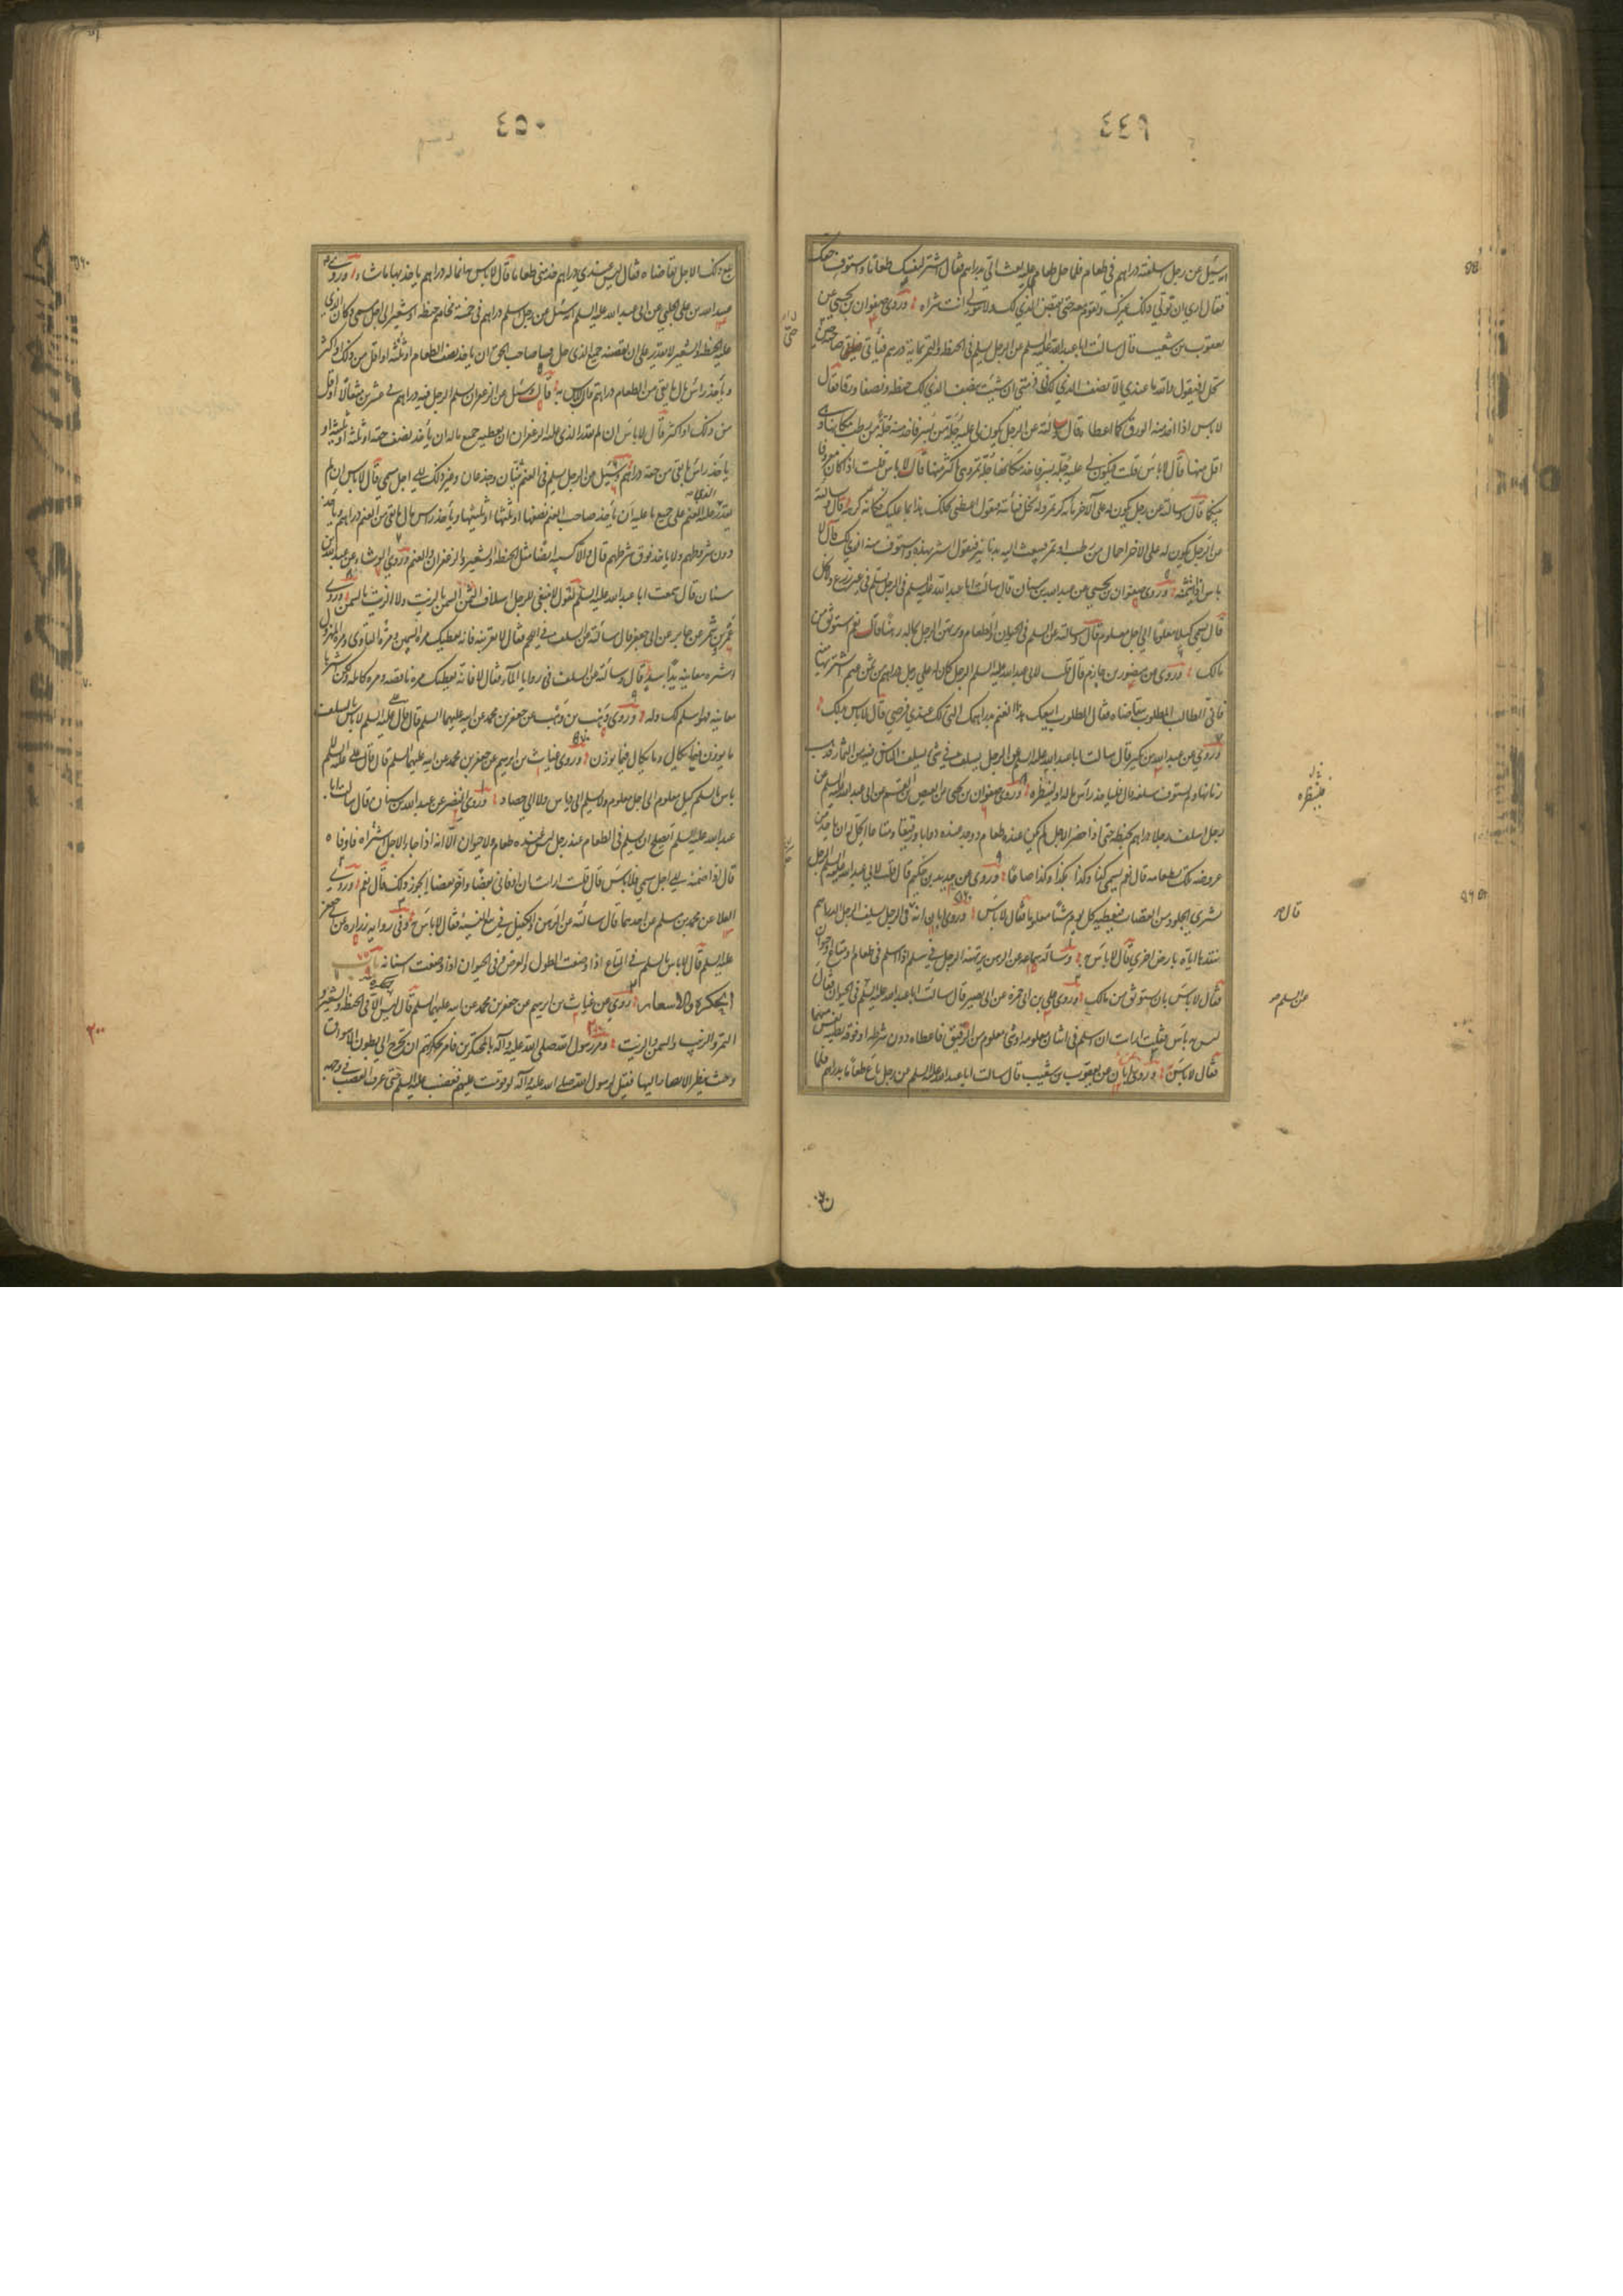 ٤٤٩
انه سئل عن رجل اسلفته دراهم في طعام فلما حل طعامي عليه بعث الي بدراهم فقال اشتر لنفسك طعاما واستوف حقك
فقال اري ان تولي ذلك غيرك وتقوم معه حتى تقبض الذي لك ولا تتولى انت شراه وروى صفوان بن يحيى عن
يعقوب بن شعيب قال سالت ابا عبد الله عليه السلم عن الرجل يسلم في الحنطة والتمر بمائة درهم فيأتي صاحبه حين
يحل له فيقول والله ما عندي الا نصف الذي لك فخذ مني ان شئت بنصف الذي لك حنطة ونصفا ورقا فقال
لا باس اذا اخذ منه الورق كما اعطاه قال وسالته عن الرجل يكون لي عليه جلة من بسر فاخذ منه جلة من رطب مكانها و
اقل منها قال لا باس قلت فيكون لي عليه جلة بسر فاخذ مكانها جلة تمر وهي اكثر منها قال لا باس قلت اذا كان معروفا
بينكما قال وسالته عن رجل يكون له على الآخر مائة كر تمر وله نخل فيأتيه فيقول اعطني نخلك هذا بما عليك فكانه كرهه قال وسالته
عن الرجل يكون له على الاخر احمال من رطب او تمر فيبعث اليه بدنانير فيقول اشتر بهذه واستوف منه الذي لك قال لا
باس اذا ائتمنه وروى صفوان بن يحيى عن عبد الله بن سنان قال سالت ابا عبد الله عليه السلم عن الرجل يسلم في غير زرع ولا نخل
قال يسمي كيلا معلوما الي اجل معلوم قال وسالته عن السلم في الحيوان والطعام ويرتهن الرجل بماله رهنا قال نعم استوثق من
مالك وروى عن منصور بن حازم قال قلت لابي عبد الله عليه السلم الرجل كان له على رجل دراهم من ثمن غنم اشتراها منه
فاتى الطالب المطلوب يتقاضاه فقال المطلوب ابيعك هذا الغنم بدراهمك التي لك عندي فرضي قال لا باس بذلك
وروى عن عبد الله بن بكير قال سالت ابا عبد الله عليه السلم عن الرجل يسلف في شئ يسلف الناس فيه من الثمار فذهب
زمانها ولم يستوف سلفه قال فليأخذ راس ماله او لينظره وروى صفوان بن يحيى عن العيص بن القسم عن ابي عبد الله عليه السلم عن
رجل اسلف رجلا دراهم بحنطة حتى اذا حضر الاجل لم يكن عنده طعام ووجد عنده دوابا ورقيقا ومتاعا ايحل له ان ياخذ من
عروضه تلك بطعامه قال نعم يسمي كذا وكذا بكذا وكذا صاعا وروى عن حديد بن حكيم قال قلت لابي عبد الله عليه السلم الرجل
يشتري الجلود من القصاب فيعطيه كل يوم شيئا معلوما فقال لا باس وروى ابان انه في الرجل يسلف الرجل الدراهم
ينقدها اياه بارض اخرى قال لا باس وساله سماعة عن الرهن يرتهنه الرجل في سلم اذا اسلم في طعام او متاع او حيوان
فقال لا باس بان تستوثق من مالك وروى علي بن ابي حمزة عن ابي بصير قال سالت ابا عبد الله عليه السلم في الحيوان فقال
ليس به باس فقلت ارايت ان اسلم في اسنان معلومة او شئ معلوم من الرقيق فاعطاه دون شرطه او فوقه بطيبة نفس منهما
فقال لا باس وروى ابان عن يعقوب بن شعيب قال سالت ابا عبد الله عليه السلم عن رجل باع طعاما بدراهم فلما
فلينظره
قال
عن السلم
٤٥٠
بلغ ذلك الاجل تقاضاه فقال ليس عندي دراهم خذ مني طعاما قال لا باس به انما له دراهم ياخذ بها ما شاء وروى
عبيد الله بن علي الحلبي عن ابي عبد الله عليه السلم انه سئل عن رجل اسلم دراهم في خمسة مخاتيم حنطة او شعير الى اجل مسمى وكان الذي
عليه الحنطة والشعير لا يقدر على ان يقضيه جميع الذي حل فجاء صاحب الحق ان ياخذ نصف الطعام او ثلثه او اقل من ذلك او اكثر
وياخذ راس مال ما بقي من الطعام دراهم قال لا باس به قال وسئل عن الزعفران يسلم الرجل فيه دراهم في عشرين مثقالا او اقل
من ذلك او اكثر قال لا باس ان لم يقدر الذي عليه الزعفران ان يعطيه جميع ماله ان يأخذ نصف حقه او ثلثه او ثلثيه و
ياخذ راس ما بقي من حقه دراهم وسئل عن الرجل يسلم في الغنم ثنيان وجذعان وغير ذلك الى اجل مسمى قال لا باس ان لم
يقدر الذي عليه الغنم على جميع ما عليه ان يأخذ صاحب الغنم نصفها او ثلثها او ثلثيها ويأخذ راس مال ما بقي من الغنم دراهم وياخذ
دون شروطهم ولا ياخذ فوق شرطهم قال والاكسية ايضا مثل الحنطة والشعير والزعفران والغنم وروى الوشاء عن عبد الله بن
سنان قال سمعت ابا عبد الله عليه السلم يقول لا ينبغي للرجل اسلاف السمن بالزيت ولا الزيت بالسمن وروى
عمرو بن شمر عن جابر عن ابي جعفر قال سالته عن السلف في اللحم فقال لا تقربنه فانه يعطيك مرة السمين ومرة التاوي ومرة المهزول
واشتره معاينة يدا بيد قال وسالته عن السلف في روايا الماء فقال لا فانه يعطيك مرة ناقصة ومرة كاملة ولكن اشترها
معاينة فهو اسلم لك وله وروى وهب بن وهب عن جعفر بن محمد عن ابيه عليهما السلم قال قال علي عليه السلم لا باس بالسلف
ما يوزن فيما يكال وما يكال فيما يوزن وروى غياث بن ابرهيم عن جعفر بن محمد عن ابيه عليهما السلم قال قال علي عليه السلم لا
باس بالسلم بكيل معلوم الى اجل معلوم ولا يسلم الى دياس ولا الى حصاد وروى النضر عن عبد الله بن سنان قال سالت ابا
عبد الله عليه السلم ايصلح ان يسلم في الطعام عند رجل ليس عنده طعام ولا حيوان الا انه اذا جاء الاجل اشتراه فاوفاه
قال اذا ضمنه الى اجل مسمى فلا باس قال قلت ارايت ان اوفاني بعضا واخر بعضا ايجوز ذلك قال نعم وروى
العلا عن محمد بن مسلم عن احدهما قال سالته عن الرهن والكفيل في بيع النسيئة فقال لا باس به وفي رواية زرارة عن ابي جعفر
عليه السلم قال لا باس بالسلم في المتاع اذا وصفت الطول والعرض وفي الحيوان اذا وصفت اسنانه باب
الحكرة والاسعار روى عن غياث بن ابرهيم عن جعفر بن محمد عن ابيه عليهما السلم قال ليس الحكرة الا في الحنطة والشعير و
التمر والزبيب والسمن والزيت ومر رسول الله صلى الله عليه وآله بالمحتكرين فامر بحكرتهم ان تخرج الى بطون الاسواق
وحيث ينظر الابصار اليها فقيل لرسول الله صلى الله عليه وآله لو قومت عليهم فغضب عليه السلم حتى عرف الغضب في وجهه